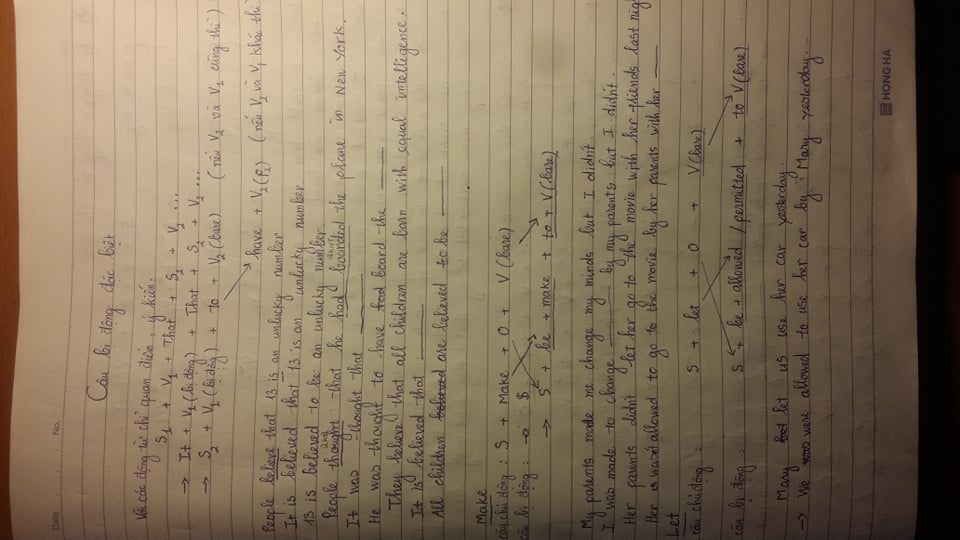 Date No.
Câu bị động đặc biệt
Với các động từ chỉ quan điểm, ý kiến:
S1 + V1 + That + S2 + V2 ...
→ It + V1 (bị động) + That + S2 + V2 ...
→ S2 + V1 (bị động) + to + V2 (bare) (nếu V2 và V1 cùng thì)
have + V2 (P2) (nếu V2 và V1 khác thì
People believe that 13 is an unlucky number
It is believed that 13 is an unlucky number
13 is believed to be an unlucky number.
People thought that he had boarded the plane in New York.
It was thought that
He was thought to have board the
They believe that all children are born with equal intelligence.
It is believed that
All children are believed to be
Make
câu chủ động: S + Make + O + V (bare)
câu bị động: S
→ S + be + make + to + V (bare)
My parents made me change my minds but I didn't.
I was made to change by my parents but I didn't.
Her parents didn't let her go to the movie with her friends last nig
Her is wasn't allowed to go to the movie by her parents with her
Let
câu chủ động: S + let + O + V (bare)
câu bị động: S + be + allowed / permitted + to V (bare)
Mary let us use her car yesterday.
→ We were allowed to use her car by Mary yesterday.
HONG HA